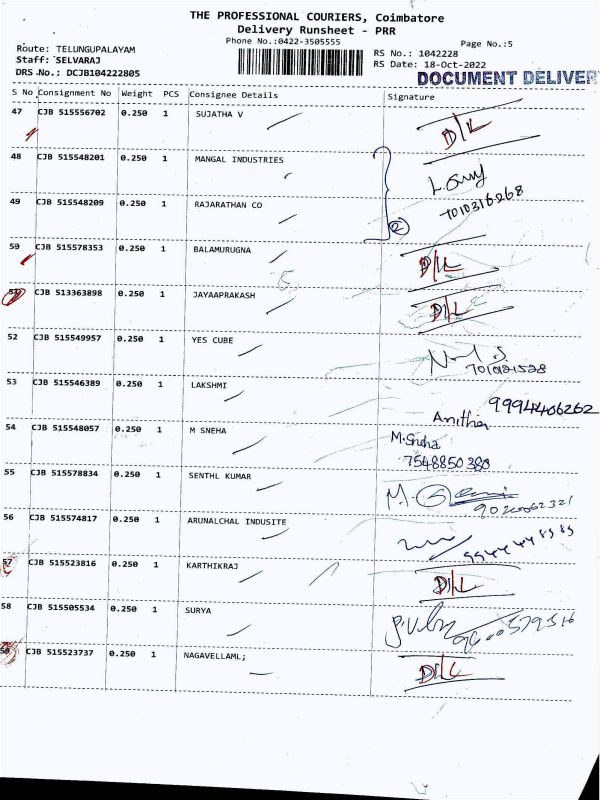 THE PROFESSIONAL COURIERS, Coimbatore
Delivery Runsheet - PRR
Phone No.:0422-3505555
Page No.:5
Route: TELUNGUPALAYAM
RS No.: 1042228
Staff: SELVARAJ
RS Date: 18-Oct-2022
DRS.No.: DCJB104222805
DOCUMENT DELIVER
S No Consignment No Weight PCS Consignee Details Signature
47 CJB 515556702 0.250 1 SUJATHA V D/L
48 CJB 515548201 0.250 1 MANGAL INDUSTRIES
7010316268
49 CJB 515548209 0.250 1 RAJARATHAN CO
2
50 CJB 515578353 0.250 1 BALAMURUGNA D/L
51 CJB 513363898 0.250 1 JAYAAPRAKASH D/L
52 CJB 515549957 0.250 1 YES CUBE
53 CJB 515546389 0.250 1 LAKSHMI
Anitha 9994406262
54 CJB 515548057 0.250 1 M SNEHA M.Sneha
7548850380
55 CJB 515578834 0.250 1 SENTHL KUMAR
56 CJB 515574817 0.250 1 ARUNALCHAL INDUSITE
57 CJB 515523816 0.250 1 KARTHIKRAJ D/L
58 CJB 515505534 0.250 1 SURYA
59 CJB 515523737 0.250 1 NAGAVELLAML; D/L